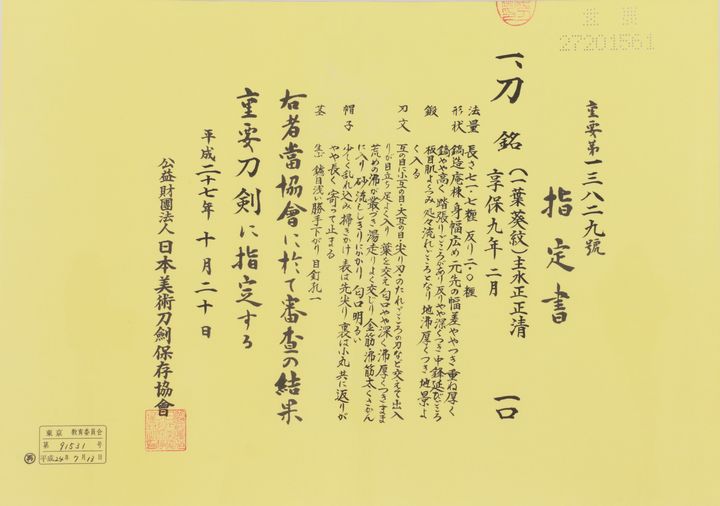 重要第一三八二九號
指定書
一、刀 銘 (一葉葵紋)主水正正清 一口
享保九年二月
法量 長さ七一・七糎 反り二・〇糎
形状 鎬造 庵棟 身幅広め 元先の幅差ややつき 重ね厚く
鎬やや高く 踏張りごころがあり 反りやや深くつき 中鋒延びごころ
鍛 板目肌よくつみ 処々流れごころとなり 地沸厚くつき 地景よ
く入る
刃文 互の目に小互の目・大互の目・尖り刃・のたれごころの刃など交えて出入
りが目立ち 足よく入り 葉を交え 匂口やや深く 沸厚くつき
荒めの沸が叢づき 湯走りよく交じり 金筋・沸筋太くさかん
に入り 砂流しさかりにかかり 匂口明るい
帽子 少しく乱れ込み 掃きかけ 表は先尖り 裏は小丸 共に返りが
やや長く 寄って止まる
茎 生ぶ 鑢目浅い勝手下がり 目釘孔一
右者當協會に於て審査の結果
重要刀剣に指定する
平成二十七年十月二十日
公益財團法人日本美術刀劍保存協會
重要
27201561
東京 教育委員会
第 91531 号
平成24年7月13日